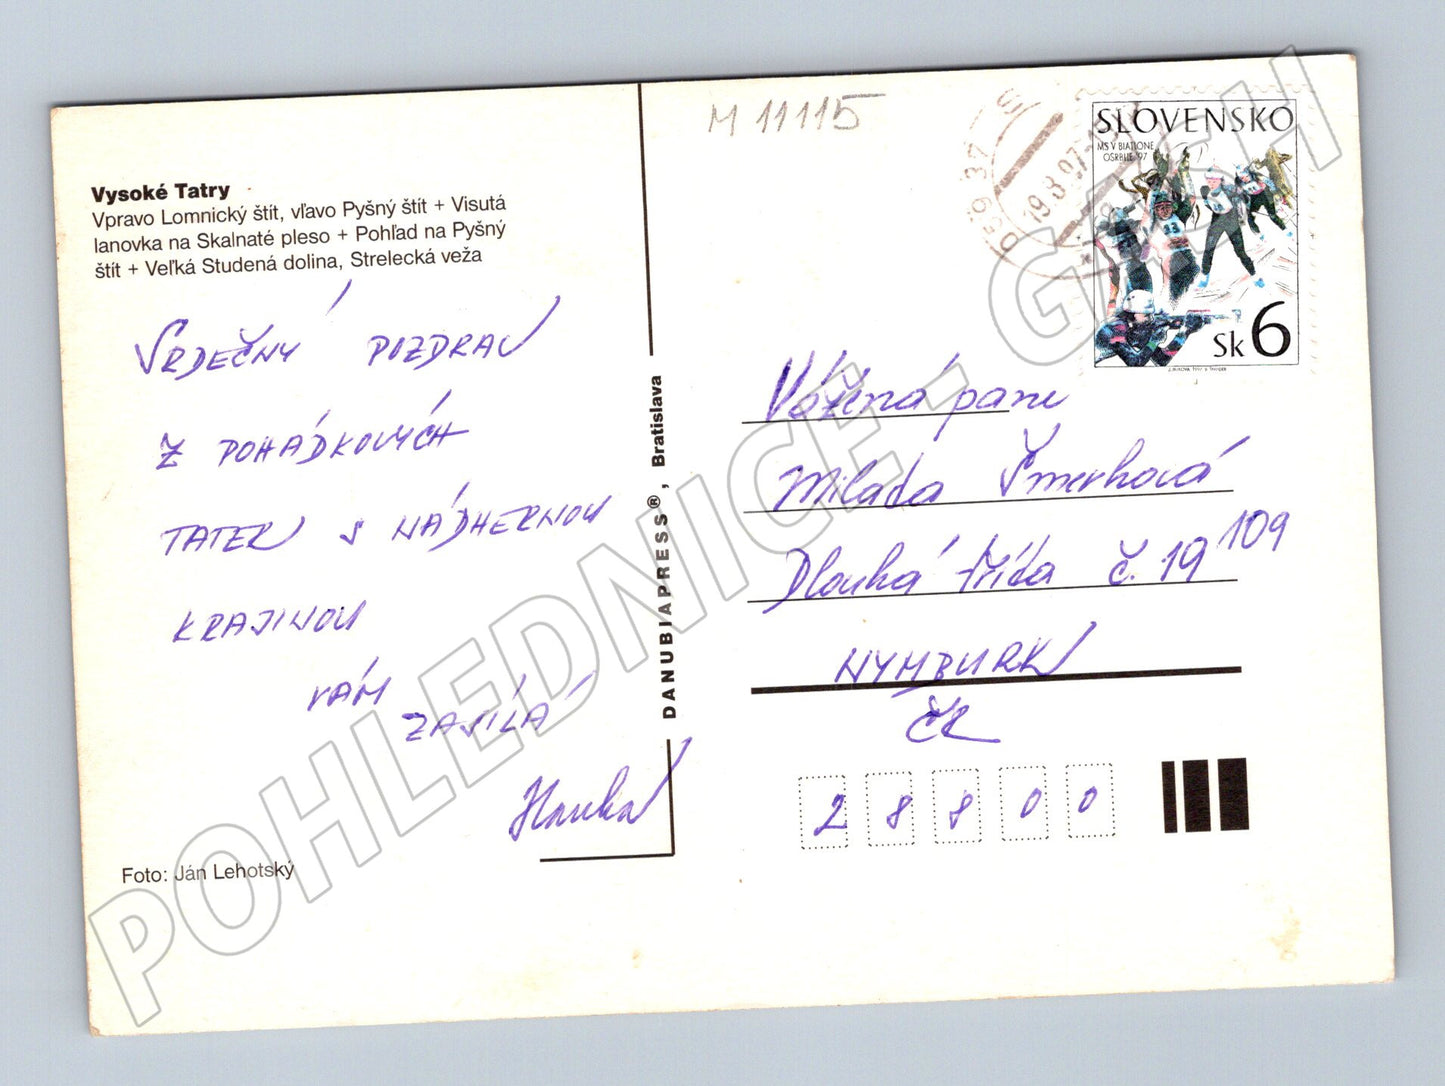 M 11115
Vysoké Tatry
Vpravo Lomnický štít, vľavo Pyšný štít + Visutá
lanovka na Skalnaté pleso + Pohľad na Pyšný
štít + Veľká Studená dolina, Strelecká veža
SRDEČNÝ POZDRAV
Z POHÁDKOVÝCH
TATER S NÁDHERNOU
KRAJINOU
VÁM
ZASÍLÁ
Hanka
Foto: Ján Lehotský
DANUBIAPRESS®, Bratislava
059 37
19.8.97
SLOVENSKO
MS V BIATLONE
OSRBLIE '97
Sk 6
Vážená paní
Milada Šmerhová
Dlouhá třída č. 19 109
NYMBURK
ČR
28800
POHLEDNICE - GASH